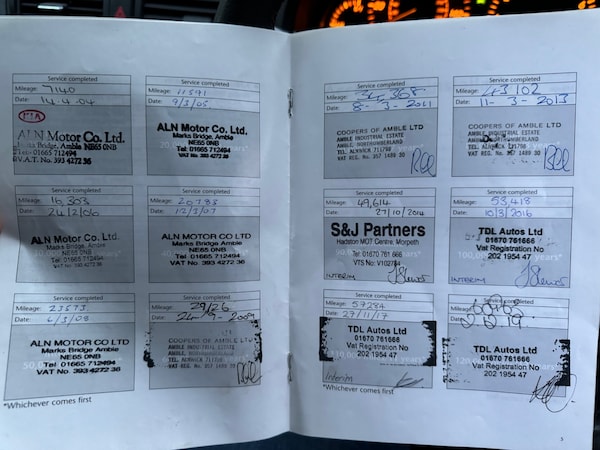 Service completed
Mileage: 7140
Date: 14.4.04
KIA
ALN Motor Co. Ltd.
Marks Bridge, Amble NE65 0NB
Tel: 01665 712494
V.A.T. No. 393 4272 36
Service completed
Mileage: 11391
Date: 9/3/05
ALN Motor Co. Ltd.
Marks Bridge, Amble
NE65 0NB
Tel: 01665 712494
VAT No: 393 4272 36
Service completed
Mileage: 16,303
Date: 24/2/06
ALN Motor Co. Ltd.
Marks Bridge, Amble
NE65 0NB
Tel: 01665 712494
VAT No: 393 4272 36
Service completed
Mileage: 20783
Date: 12/3/07
ALN Motor Co. Ltd.
Marks Bridge Amble
NE65 0NB
Tel: 01665 712494
VAT No: 393 4272 36
Service completed
Mileage: 23573
Date: 6/3/08
ALN MOTOR CO. LTD.
MARKS BRIDGE AMBLE
NE65 0NB
TEL: 01665 712494
VAT No. 393 4272 36
Service completed
Mileage:
Date:
COOPERS OF AMBLE LTD
AMBLE INDUSTRIAL ESTATE
AMBLE, NORTHUMBERLAND
*Whichever comes first
Service completed
Mileage:
Date: 8-3-2011
COOPERS OF AMBLE LTD
AMBLE INDUSTRIAL ESTATE
AMBLE, NORTHUMBERLAND
TEL. ALNWICK 711798
VAT REG. No. 357 1489 30
Service completed
Mileage: 43102
Date: 11-3-2013
COOPERS OF AMBLE LTD
AMBLE INDUSTRIAL ESTATE
NORTHUMBERLAND
VAT REG. No. 357 1489 30
Service completed
Mileage: 49,614
Date: 27/10/2014
S&J Partners
Hadston MOT Centre, Morpeth
Tel: 01670 761 666
INTERIM
Service completed
Mileage: 53,418
Date: 10/3/2016
TDL Autos Ltd
01670 761666
Vat Registration No
202 1954 47
INTERIM
Service completed
Mileage: 57284
Date: 27/11/17
TDL Autos Ltd
01670 761666
Vat Registration No
202 1954 47
Interim
Service completed
Mileage:
Date:
TDL Autos Ltd
01670 761666
Vat Registration No
202 1954 47
*Whichever comes first
5